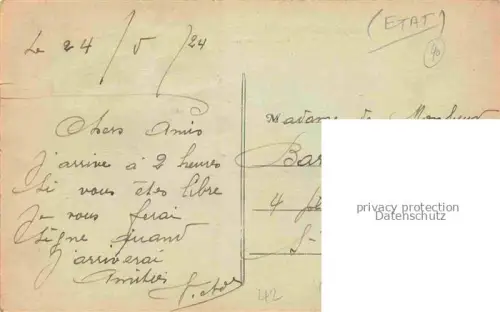 Le 24/5/24
(ETAT)
Chers Amis
J'arrive à 2 heures
Si vous êtes libre
Je vous ferai
Signe quand
J'arriverai
Amitiés
Madame de Monsieur
Bar
4
S-
42
privacy protection
Datenschutz